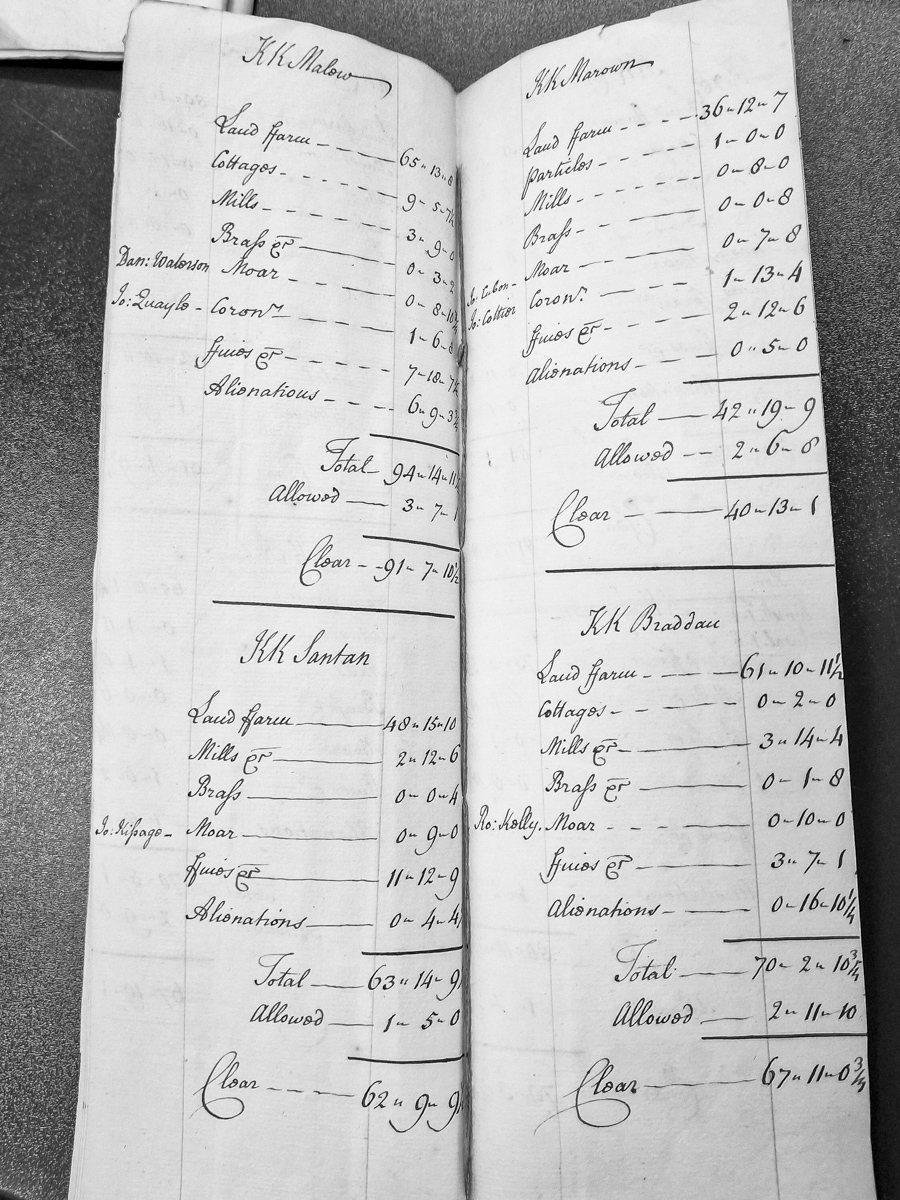 KK Malow
Land ffarm - - - 65 „ 13 „ 8
Cottages - - - - 9 - 5 - 7½
Mills - - - - - 3 „ 9 - 0
Brass &c 0 - 3 - 2
Dan: Waterson Moar - - - 0 - 8 - 10¼
Jo: Quayle - Coronr - - - - 1 - 6 - 8
ffines &c - - - - 7 - 18 - 7½
Alienations - - - - 6 - 9 - 3¼
Total 94 „ 14 „ 11½
Allowed 3 „ 7 „ 1
Clear - - 91 „ 7 „ 10½
KK Santan
Land ffarm 48 „ 15 „ 10
Mills &c 2 „ 12 „ 6
Brass 0 „ 0 „ 4
Jo: Kissage - Moar 0 „ 9 - 0
ffines &c 11 „ 12 - 9
Alienations 0 - 4 - 4
Total 63 „ 14 - 9
Allowed 1 „ 5 - 0
Clear - - - - 62 „ 9 „ 9
KK Marown
Land ffarm - - - - 36 „ 12 „ 7
particles - - - - 1 - 0 - 0
Mills - - - - - 0 „ 8 - 0
Brass 0 - 0 - 8
Jo: Cubon - Moar 0 - 7 - 8
Jo: Cottier Coronr - - - - 1 - 13 - 4
ffines &c - - - - 2 „ 12 - 6
Alienations 0 „ 5 - 0
Total 42 „ 19 - 9
Allowed - - 2 „ 6 - 8
Clear 40 - 13 - 1
KK Braddan
Land ffarm 61 - 10 - 11½
Cottages - - - - 0 - 2 - 0
Mills &c 3 „ 14 - 4
Brass &c 0 - 1 - 8
Ro: Kelly. Moar - - - 0 - 10 - 0
ffines &c 3 „ 7 - 1
Alienations 0 - 16 - 10¼
Total 70 - 2 „ 10¾
Allowed 2 „ 11 - 10
Clear 67 „ 11 - 0¾